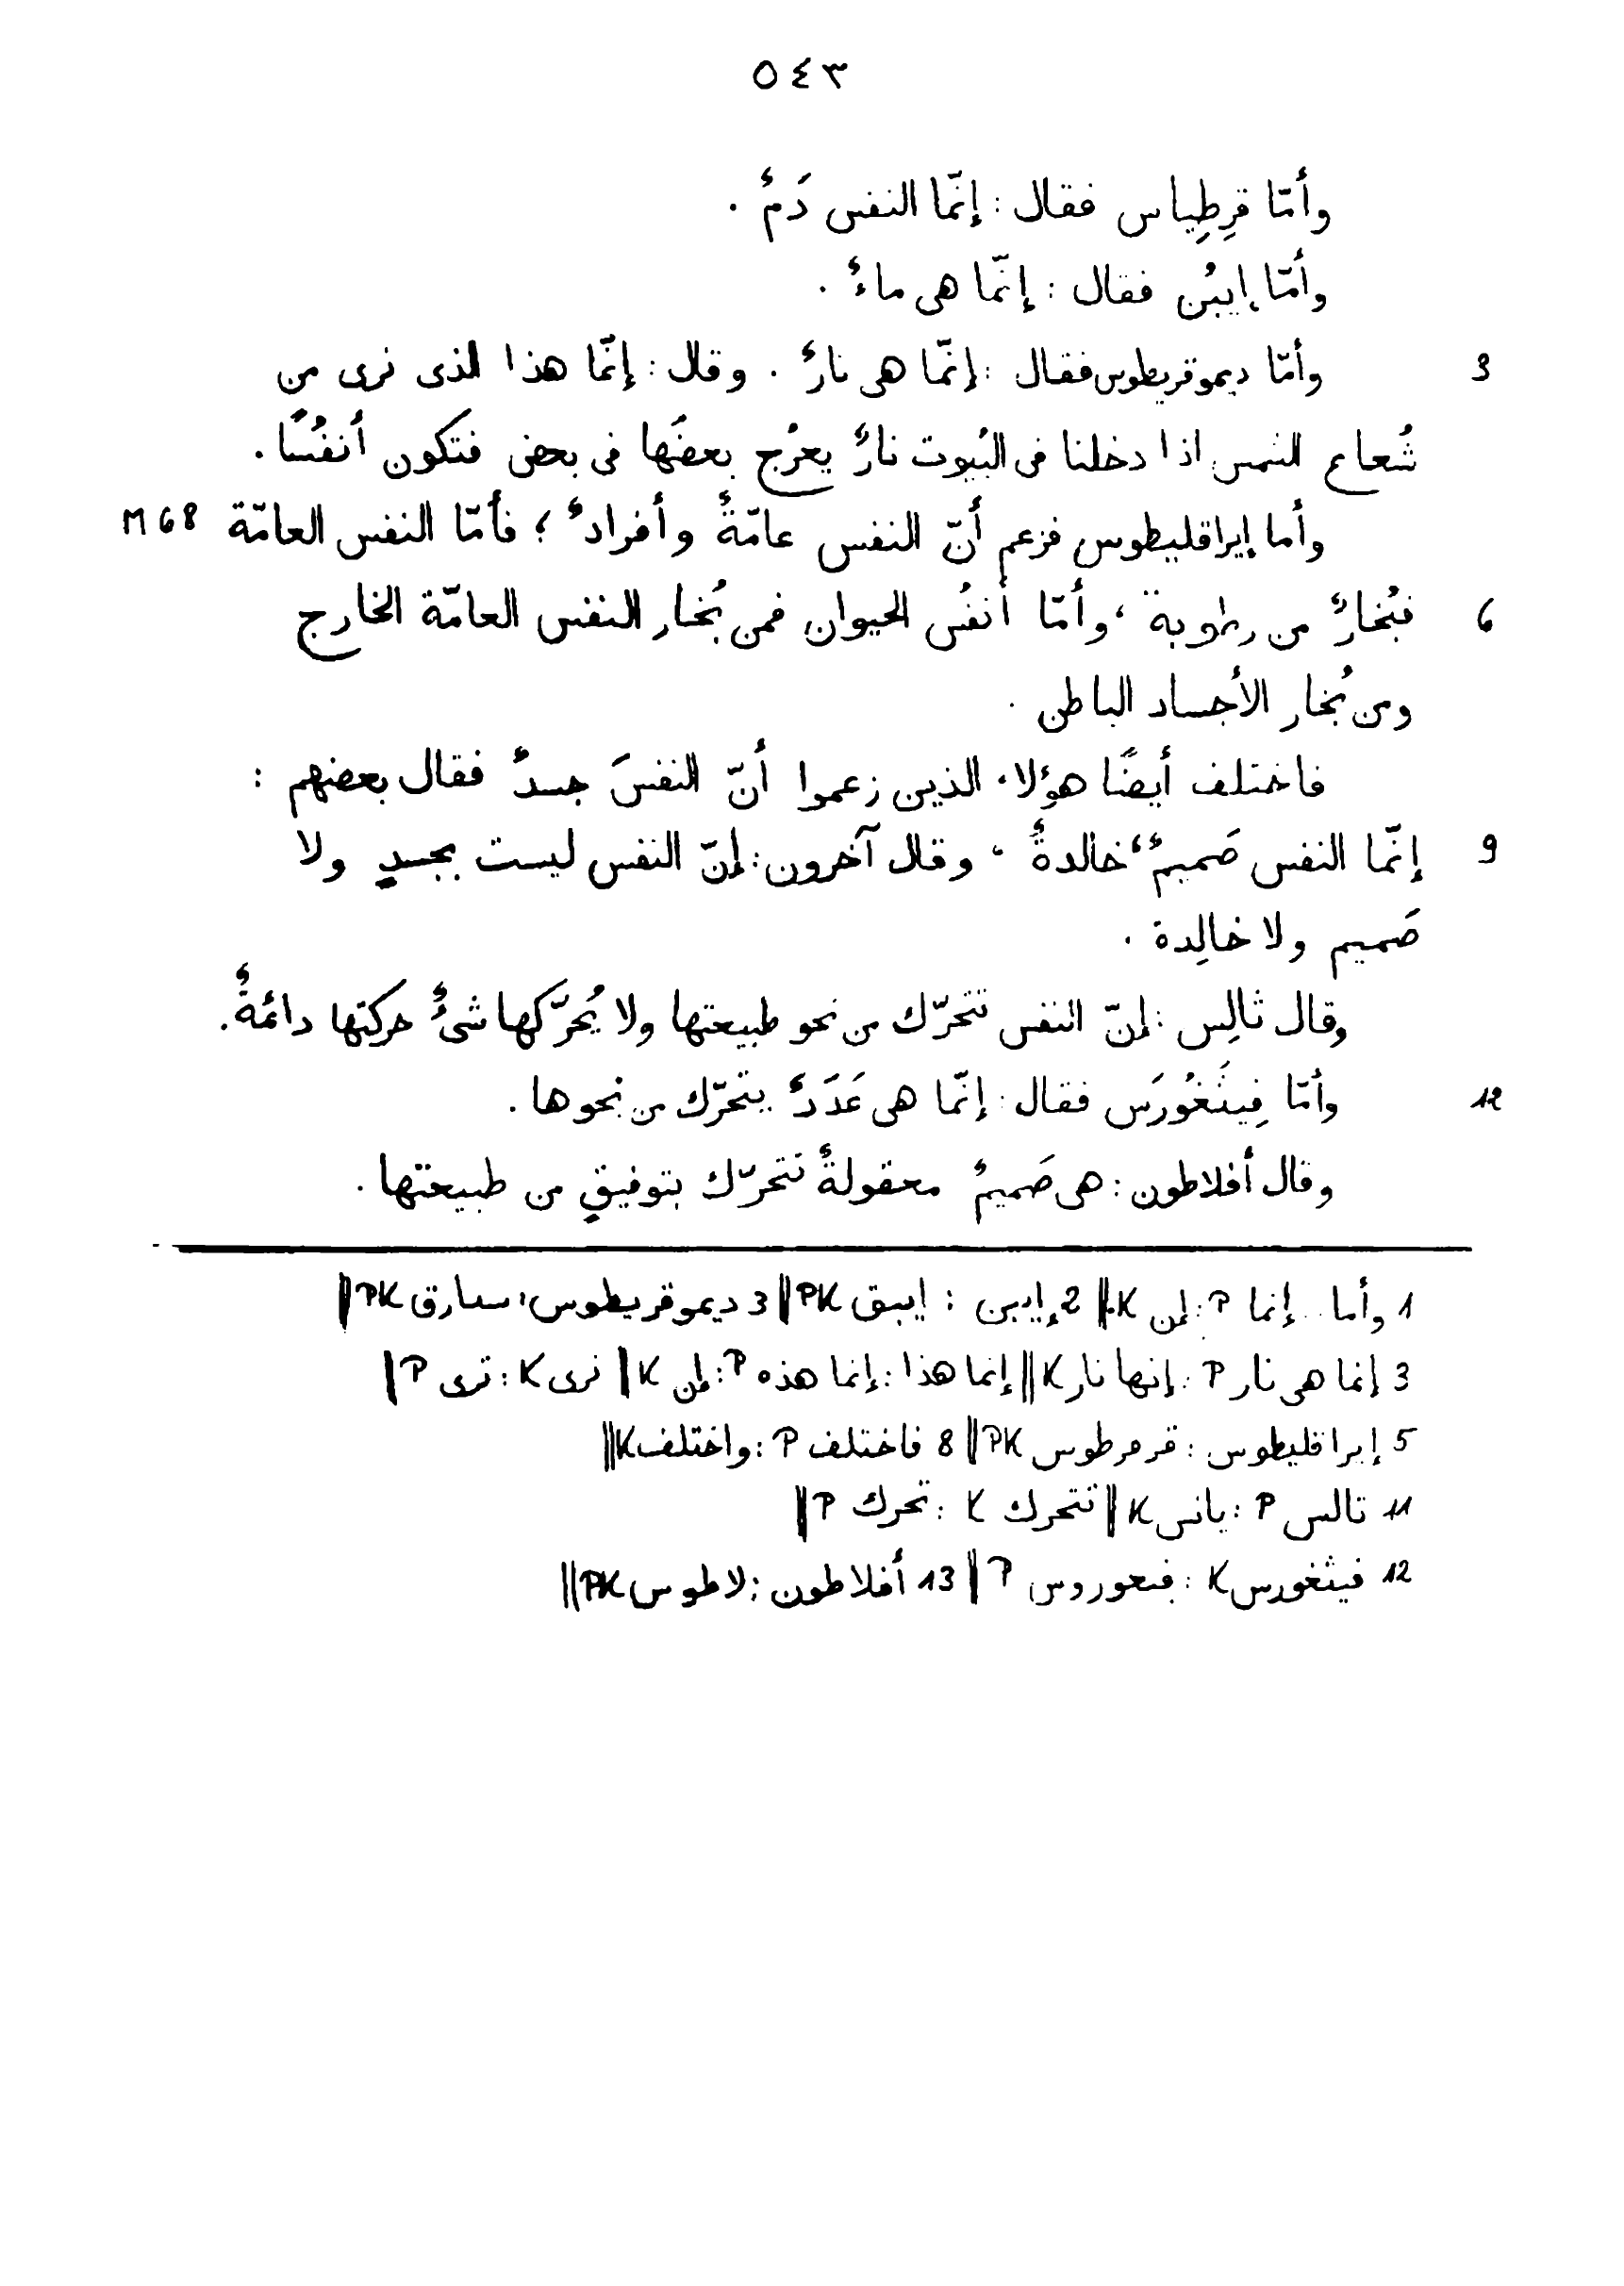 ٥٤٣
وأمّا قرِطِياس فقال : إنّما النفس دَمٌ .
وأمّا إيبُن فقال : إنّما هى ماءٌ .
3 وأمّا ديموقريطوس فقال : إنّما هى نارٌ . وقال : إنّما هذا الذى نرى من
شُعاع الشمس اذا دخلنا فى البُيوت نارٌ يعرُج بعضُها فى بعض فتكون أنفُسًا .
وأما إيراقليطوس فزعم أنّ النفس عامّةٌ وأفرادٌ ؛ فأمّا النفس العامّة M 68
6 فبُخارٌ من رطوبة ، وأمّا أنفُس الحيوان فمن بُخار النفس العامّة الخارج
ومن بُخار الأجساد الباطن .
فاختلف أيضًا هؤلاء الذين زعموا أنّ النفسَ جسدٌ فقال بعضهم :
9 إنّما النفس صَميمٌ ، خالدةٌ ، وقال آخرون : إنّ النفس ليست بجسدٍ ولا
صَميم ولا خالِدة .
وقال ثالِس : إنّ النفس تتحرّك من نحو طبيعتها ولا يُحرّكها شىءٌ حركتها دائمةٌ .
12 وأمّا فِيثَغُورَس فقال : إنّما هى عَدَدٌ يتحرّك من نحوها .
وقال أفلاطون : هى صَميمٌ معقولةٌ تتحرّك بتوفيقٍ من طبيعتها .
1 وأما .. إنما P : إن K || 2 إيبن : ايبق PK || 3 ديموقريطوس : سارق PK ||
3 إنما هى نار P : إنها نار K || إنما هذا : إنما هذه P : إن K || نرى K : ترى P ||
5 إيراقليطوس : قرمرطوس PK || 8 فاختلف P : واختلف K ||
11 ثالس P : يانس K || تتحرك K : تحرك P ||
12 فيثغورس K : فىعوروس P || 13 أفلاطون : لاطوس PK ||